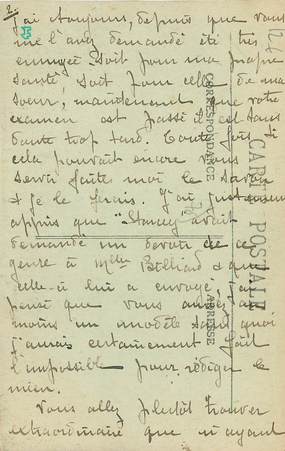 2.
j'ai toujours, depuis que vous
me l'avez demandé été très
ennuyée soit pour ma propre
santé, soit pour celle de ma
soeur, maintenant que votre
examen est passé il est sans
doute trop tard. Toutefois si
cela pouvait encore vous
servir faite moi le savoir
& je le ferais. J'ai justement
appris que "Stancey" avait
demandé un devoir de ce
genre à Melle Billiard & que
celle-ci lui a envoyé, j'ai
pensé que vous auriez au
moins un modèle sans quoi
j'aurais certainement fait
l'impossible pour rédiger le
mien.
Vous allez plutôt trouver
extraordinaire que n'ayant
CARTE POSTALE
CORRESPONDANCE
ADRESSE